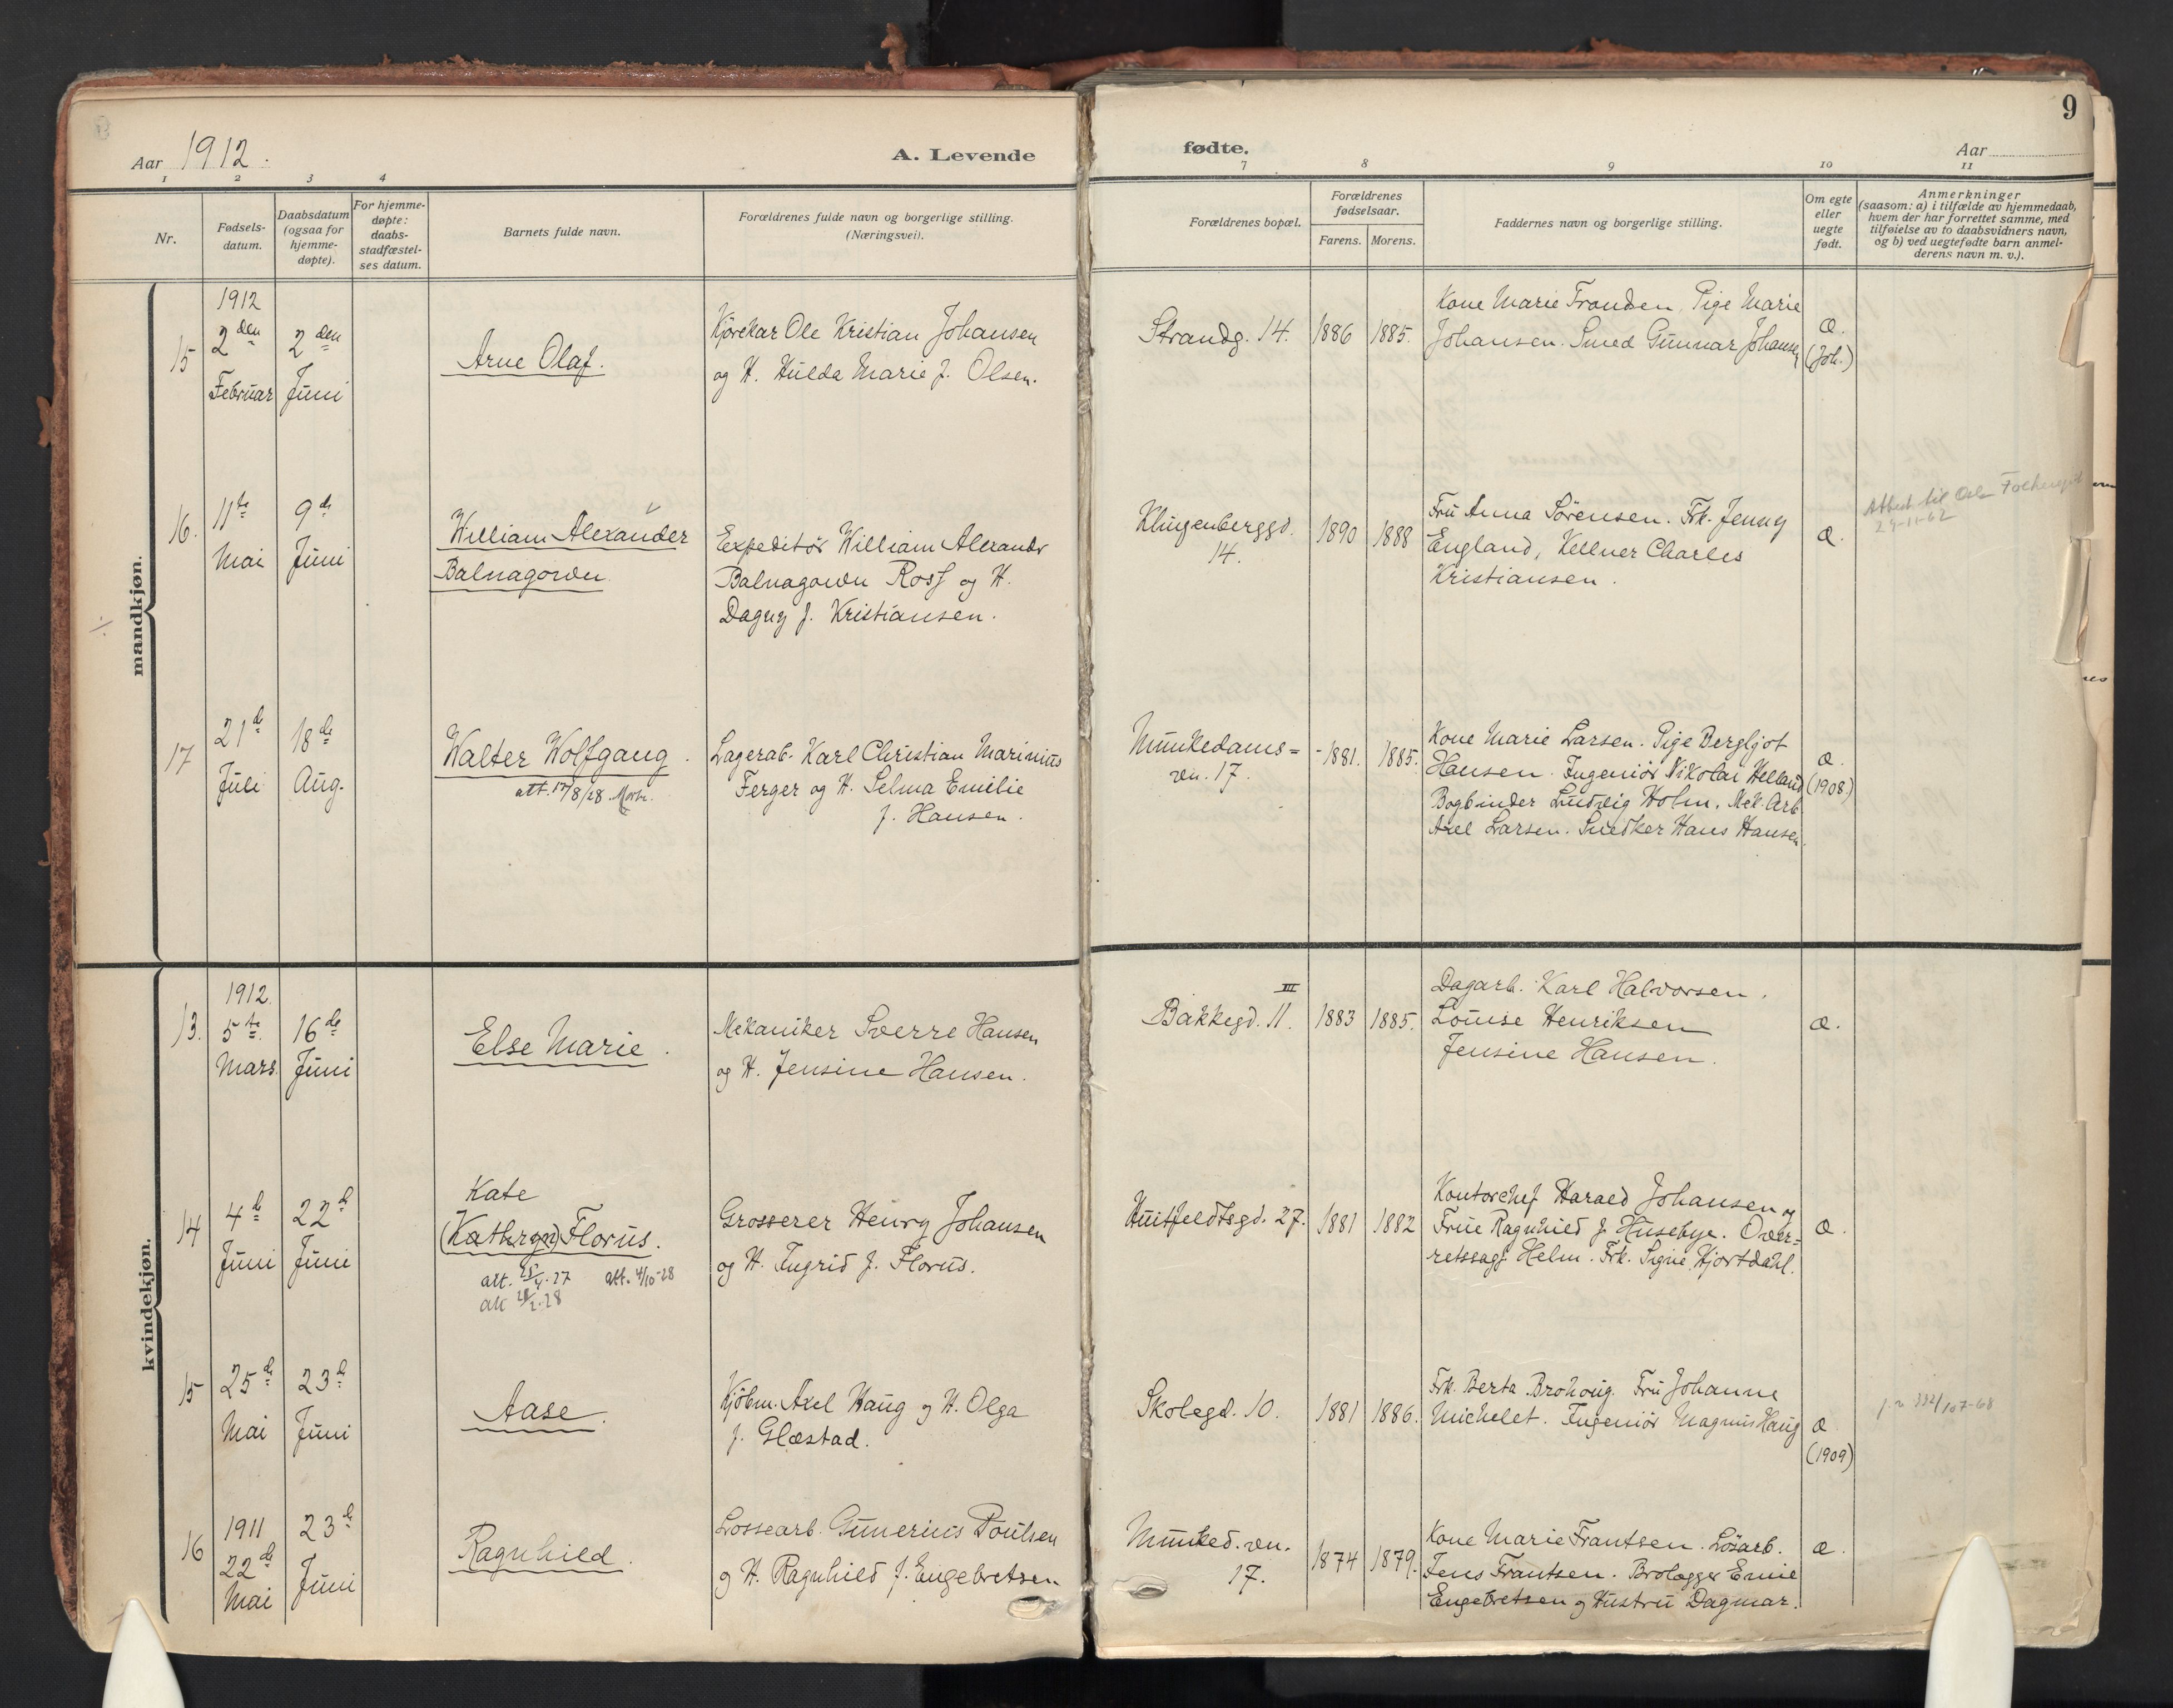 9
Aar 1912.
A. Levende
fødte.
Aar
1 2 3 4
7 8 9 10 11
Nr.
Fødsels-
datum.
Daabsdatum
(ogsaa for
hjemme-
døpte).
For hjemme-
døpte:
daabs-
stadfæstel-
ses datum.
Barnets fulde navn.
Forældrenes fulde navn og borgerlige stilling.
(Næringsvei).
Forældrenes bopæl.
Forældrenes
fødselsaar.
Farens. Morens.
Faddernes navn og borgerlige stilling.
Om egte
eller
uegte
født.
Anmerkninger
(saasom: a) i tilfælde av hjemmedaab,
hvem der har forrettet samme, med
tilføielse av to daabsvidners navn,
og b) ved uegtefødte barn anmel-
derens navn m. v.).
mandkjøn.
15
1912
2den
Februar
2den
Juni
Arne Olaf.
Kjørekar Ole Kristian Johansen
og H. Hulda Marie f. Olsen.
Strandg. 14.
1886
1885.
Kone Marie Frandsen, Pige Marie
Johansen. Smed Gunnar Johansen
Æ.
(Joh.)
16.
11te
Mai
9de
Juni
William Alexander
Balnagown
Expeditør William Alexander
Balnagown Ross og H.
Dagny f. Kristiansen.
Klingenberggd.
14.
1890
1888
Fru Anna Sørensen. Frk. Jenny
England, Kellner Charles
Kristiansen.
Æ.
Attest til Oslo
29-11-62
17
21de
Juli
18de
Aug.
Walter Wolfgang.
att. 17/8/28.
Lagerarb. Karl Christian Marinius
Ferger og H. Selma Emilie
f. Hansen.
Munkedams=
vn. 17.
1881.
1885.
Kone Marie Larsen. Pige Bergljot
Hansen. Ingeniør Nikolai Helland
Bogbinder Ludvig Holm. Mek. Arb.
Axel Larsen. Snedker Hans Hansen.
Æ.
(1908.)
kvindekjøn.
13.
1912.
5te
Mars
16de
Juni
Else Marie.
Mekaniker Sverre Hansen
og H. Jensine Hansen.
III
Bakkegd. 11.
1883
1885.
Dagarb. Karl Halvorsen.
Louise Henriksen
Jensine Hansen.
Æ.
14
4de
Juni
22de
Juni
Kate
(Kathryn) Florus.
att. 25/4.27 att. 4/10-28
att 28/2.28
Grosserer Henry Johansen
og H. Ingrid f. Florus.
Huitfeldtsgd. 27.
1881
1882
Kontorchef Harald Johansen og
Frue Ragnhild f. Husebye. Over=
retssagf. Helm. Frk. Signe Hjortdahl.
Æ.
15
25de
Mai
23de
Juni
Aase.
Kjøbm. Axel Haug og H. Olga
f. Glæstad.
Skolegd. 10.
1881
1886.
Frk. Berta Brohoug. Fru Johanne
Michelet. Ingeniør Magnus Haug
Æ
(1909)
16
1911
22de
Mai
23de
Juni
Ragnhild.
Lossearb. Gunerius Poulsen
og H. Ragnhild f. Engebretsen
Munked. vn.
17.
1874
1879.
Kone Marie Frantsen. Løsarb.
Jens Frantsen. Brolægger Emil
Engebretsen og Hustru Dagmar.
Æ.